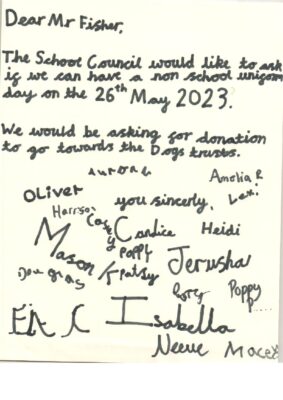 Dear Mr Fisher,
The School Council would like to ask
if we can have a non school unigorm
day on the 26th May 2023.
We would be asking for donation
to go towards the Dogs trusts.
Aurora
Amelia R
Oliver
you sincerly,
Lexi
Harrison
Casey
Candice
Heidi
Mason
Poppy
Patsy
Jerusha
Douglas
Rory
Poppy
Isabella
Neeve
Macey